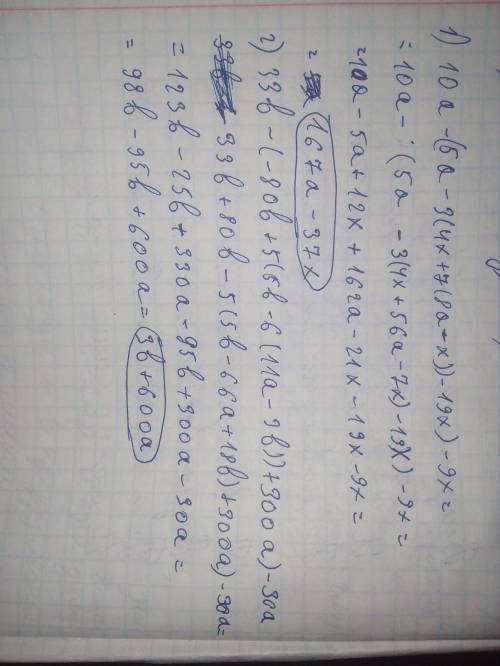 1) 10a-(5a-3(4x+7(8a-x))-19x)-9x=
=10a-(5a-3(4x+56a-7x)-19x)-9x=
=10a-5a+12x+162a-21x-19x-9x=
= 167a-37x
2) 33b-(-80b+5(5b-6(11a-3b))+300a)-30a
33b+80b-5(5b-66a+18b)+300a)-30a=
=123b-25b+330a-95b+300a-30a=
=98b-95b+600a=3b+600a